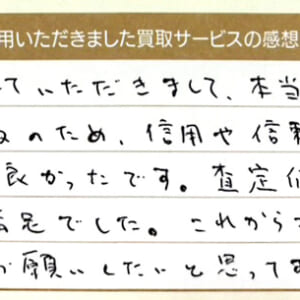 用いただきました買取サービスの感想
ていただきまして、本当
のため、信用や信頼
良かったです。査定価
満足でした。これから
お願いしたいと思って